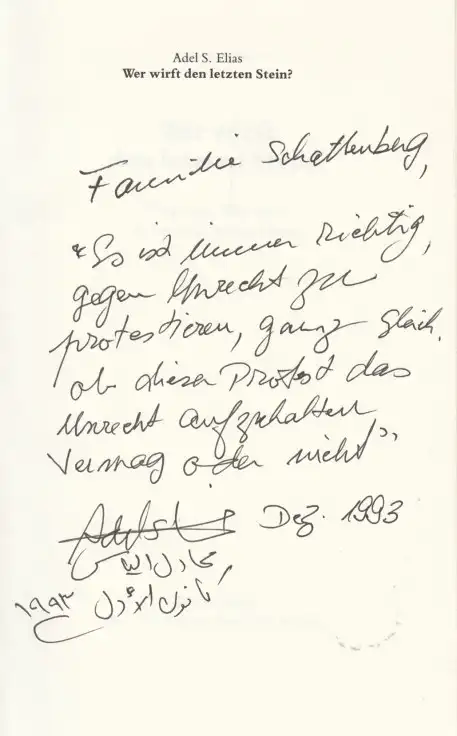 Adel S. Elias
Wer wirft den letzten Stein?
Familie Schattenberg,
"Es ist immer richtig,
gegen Unrecht zu
protestieren, ganz gleich,
ob dieser Protest das
Unrecht aufzuhalten
vermag oder nicht"
Adel S. Dez. 1993
عادل الياس
كانون الأول ١٩٩٣